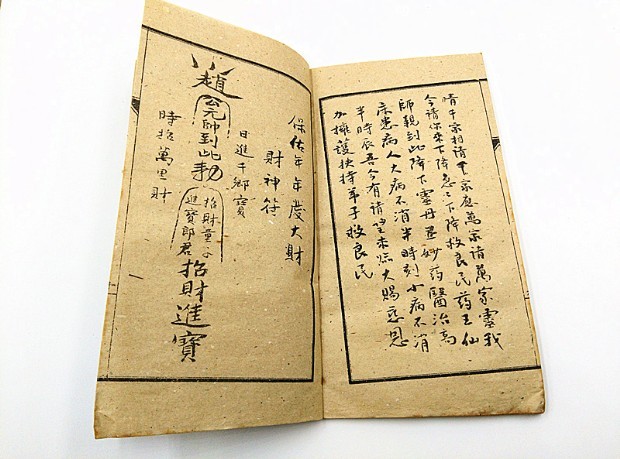 千家應萬家請萬家靈我
今請你來下降急々下降救良民药王仙
師親到此降下靈丹並妙药醫治高
床患病人大病不消半時刻小病不消
半時辰吾今有請望來臨大賜慈恩
加擁護扶持弟子救良民
保佑年年度大財
財神符
日進千鄉寳
趙公元帥到此勅
招財童子
進寳郎君
招財進寶
時招萬里財